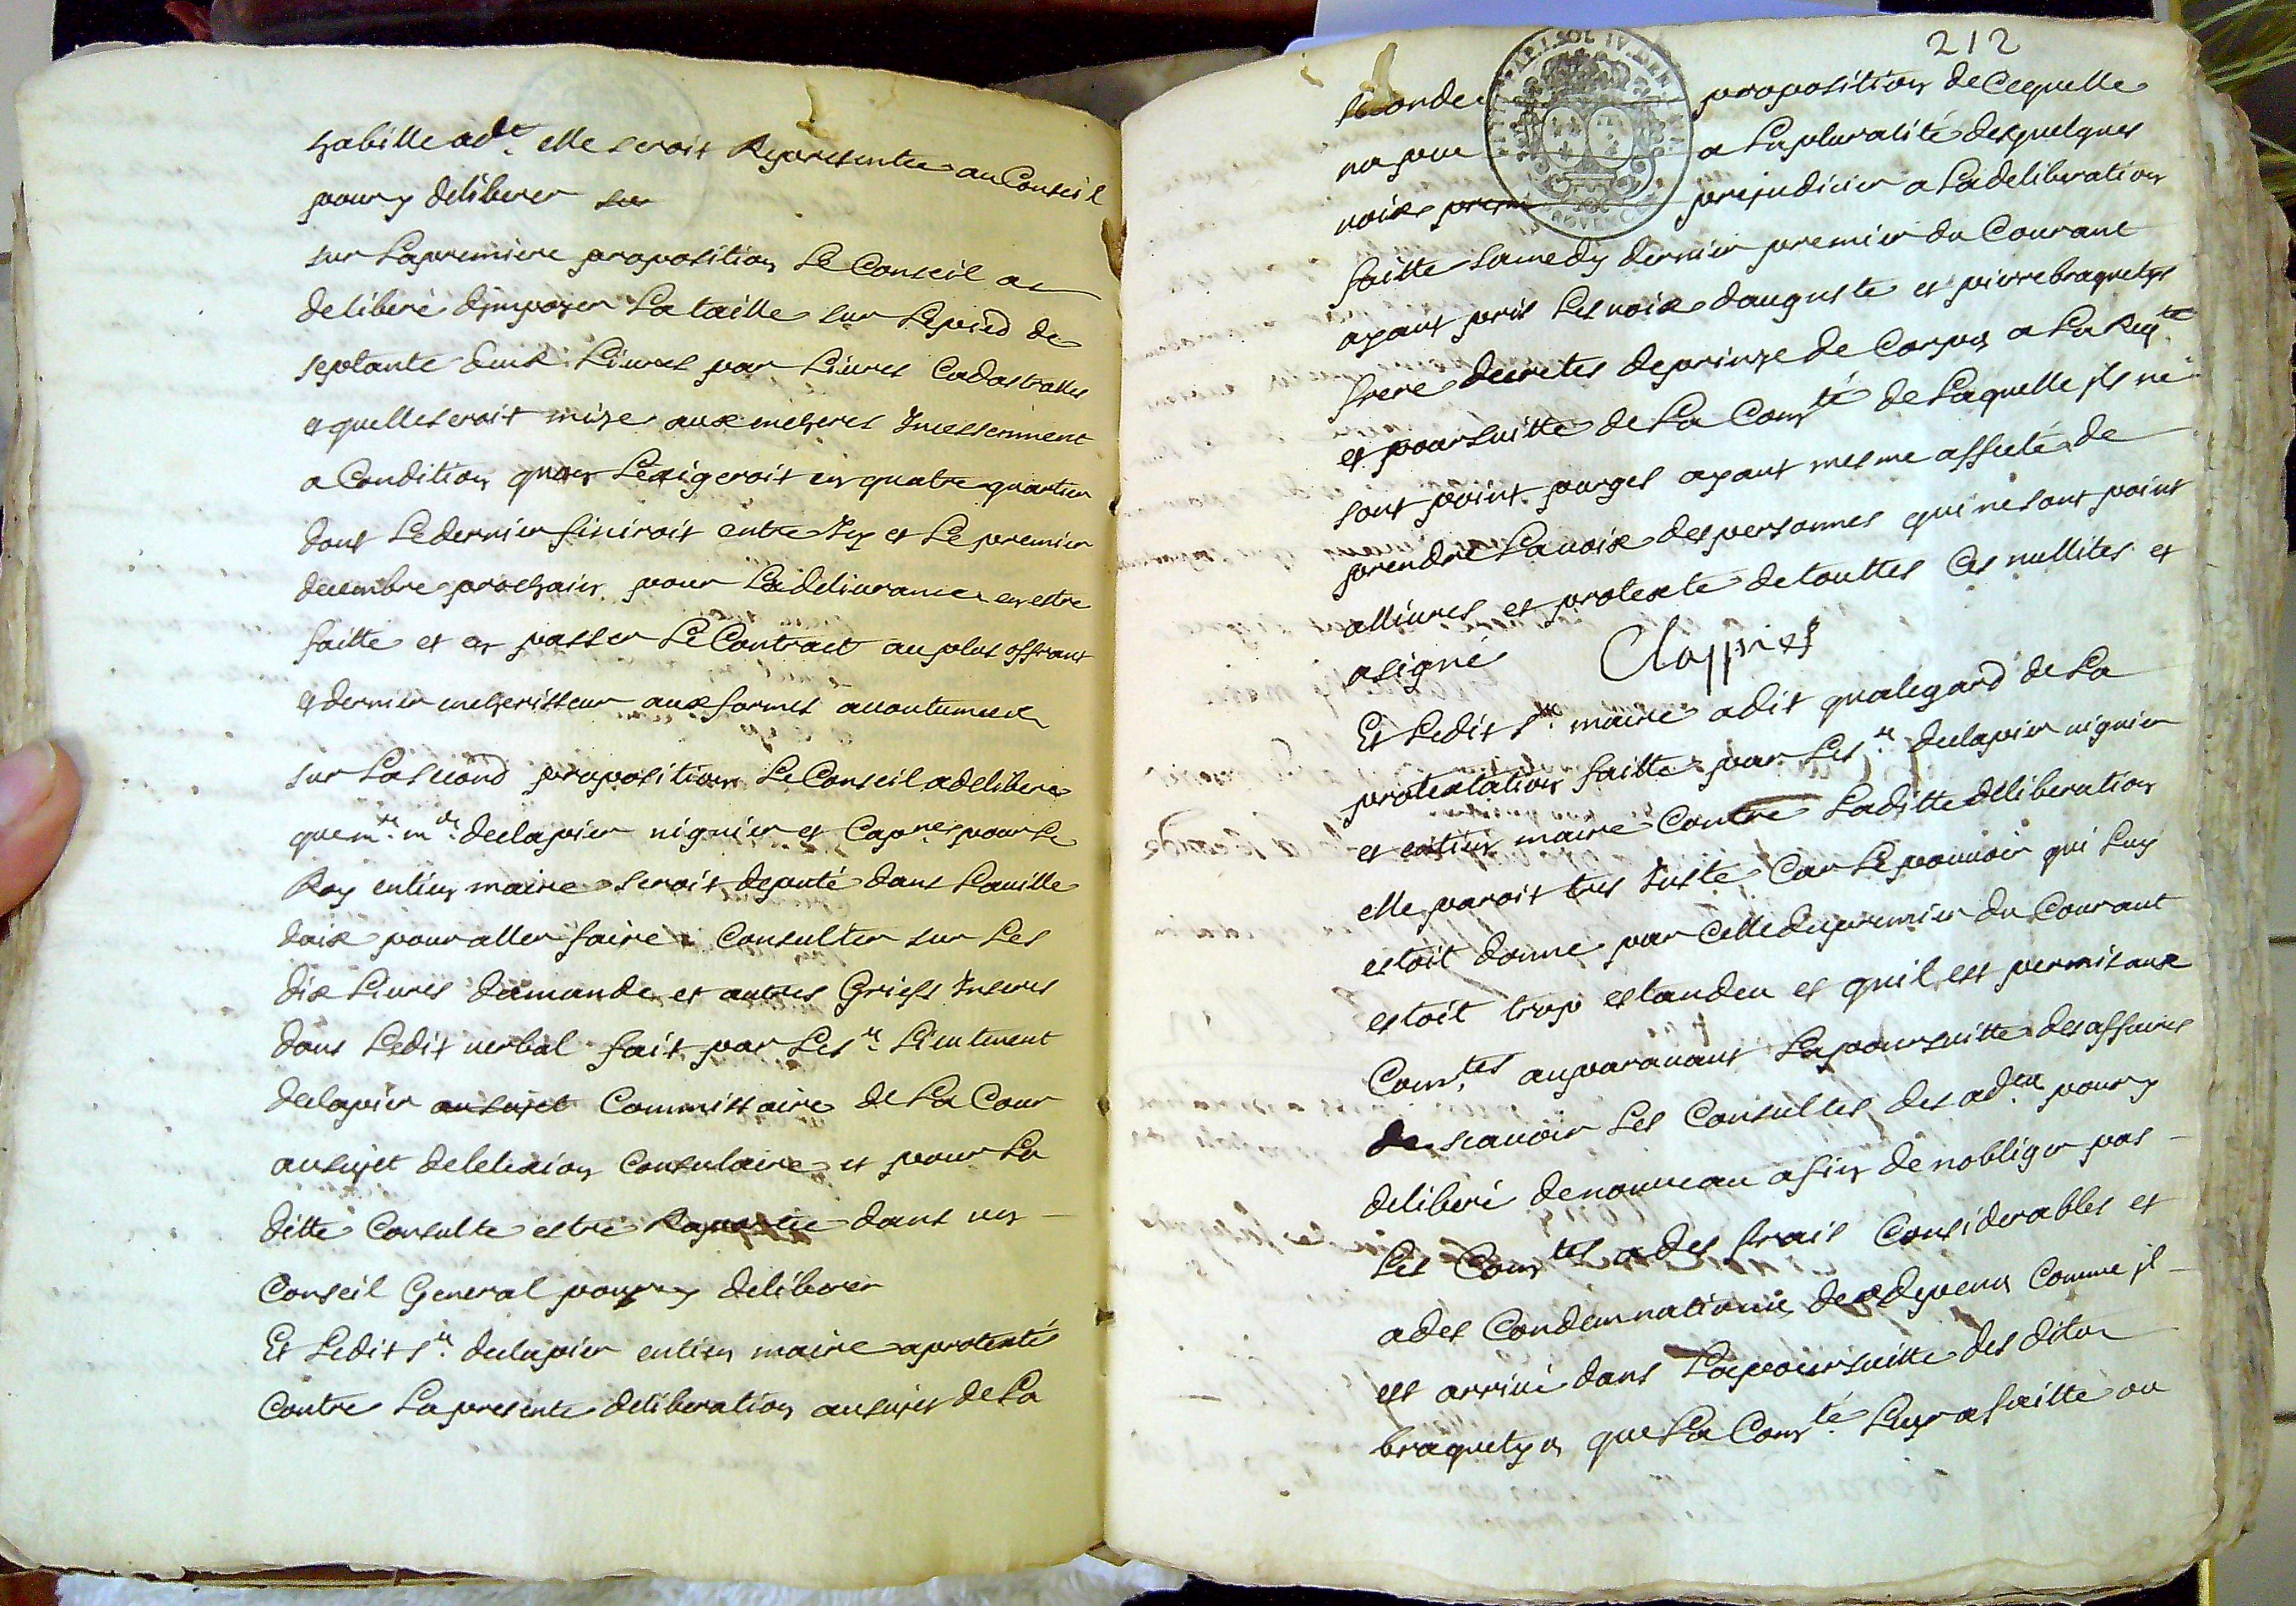 habille adt. elle seroit Representee au Conseil
pour y deliberer sur
sur La premiere proposition Le Conseil a
deliberé dJmpozer La taille sur Le pied de
septante deux Liures par Liures Cadastralles
et quelle seroit mize aux encheres Jncessemment
a Condition quon Lexigeroit en quatre quartier
dont Le dernier finiroit entre Jcy et Le premier
decembre prochain pour La deliurance en estre
faitte et en passer Le Contract au plus offrant
et dernier encherisseur aux formes accoutumees
sur La second proposition Le Conseil a deliberé
que mr. me. declapier uiguier et Capne. pour Le
Roy entien maire seroit deputé dans La uille
daix pour aller faire Consulter sur Les
dix Liures demande et autres Griefs Jnseres
dans Ledit uerbal fait par Le sr. Lieutenent
declapier au sujet Commissaire de La Cour
au sujet de lelection Consulaire et pour La
ditte Consulte estre Raportee dans un
Conseil General pour y deliberer
Et Ledit sr. declapier entien maire a protesté
Contre La presente deliberation au sujet de La
212
seconde proposition de Ce quelle
na pas a La pluralité des quelques
uoix prem prejudicier a La deliberation
faitte samedy dernier premier du Courant
ayant pris Les uoix dauguste et pierre braquety
frere decretes de prinze de Corps a La Reqte
et poursuitte de La Comté de Laquelle ils ne
sont point purges ayant mesme affecté de
prendre La uoix des personnes qui ne sont point
alliures et proteste de touttes Ces nullites et
a signé Clappiers
Et Ledit sr. maire a dit qua legard de La
protestation faitte par Le sr. declapier uiguier
et entien maire Contre Laditte deliberation
elle paroit tres Juste Car Le pouuoir qui Luy
estoit donne par Celle du premier du Courant
estoit trop estandeu et quil est permis aux
Comtes auparauant La poursuitte des affaires
de scauoir Les Consultes des adts pour y
deliberé de nouueau afin de nobliger pas
Les Comtes a des frais Considerables et
a des Condemnations de depens Comme il
est arriué dans La poursuitte des ditos
braquety que La Comté Luy a faitte ou